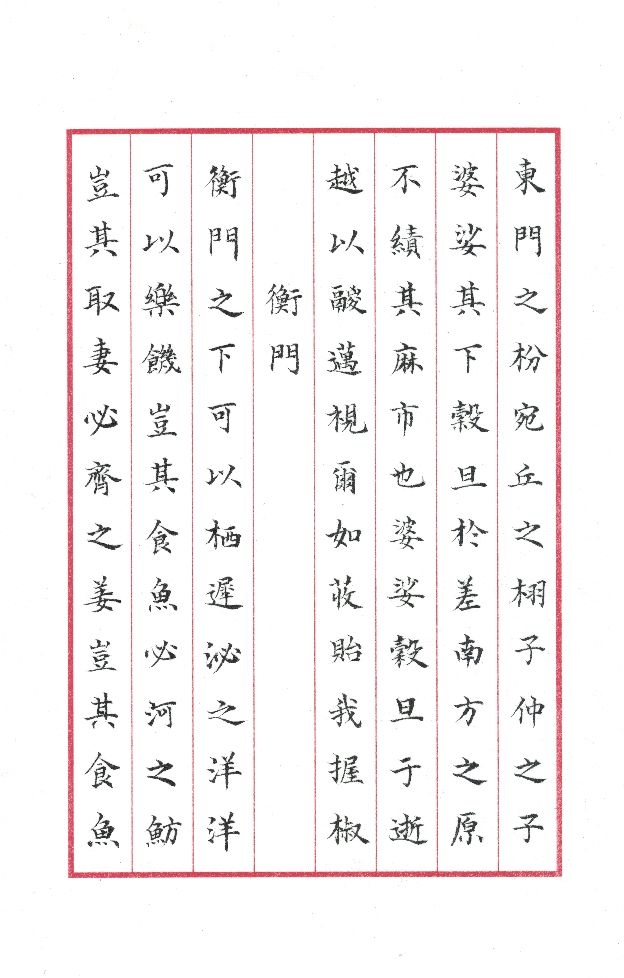 東門之枌宛丘之栩子仲之子
婆娑其下穀旦於差南方之原
不績其麻市也婆娑穀旦于逝
越以鬷邁視爾如荍貽我握椒
衡門
衡門之下可以栖遲泌之洋洋
可以樂饑豈其食魚必河之魴
豈其取妻必齊之姜豈其食魚